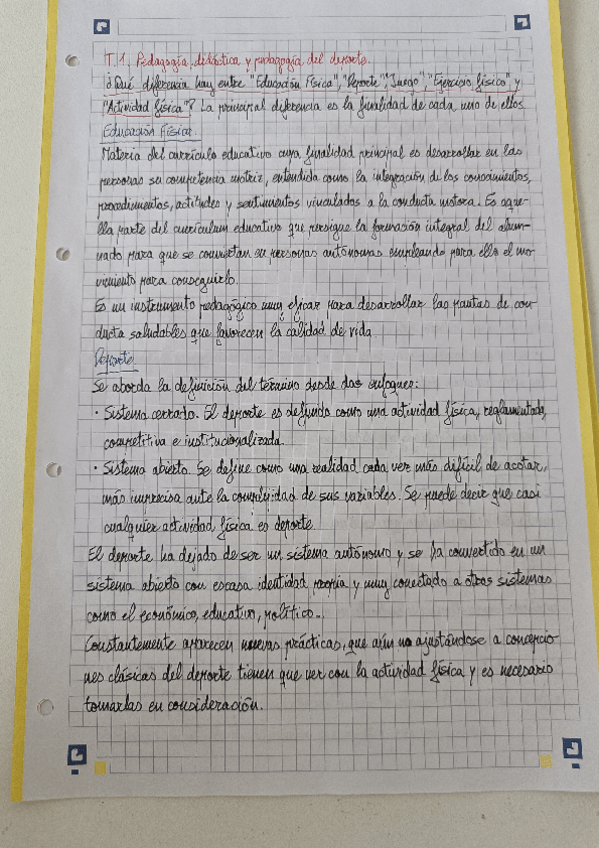 T.1. Pedagogía, didáctica y pedagogía del deporte.
¿Qué diferencia hay entre "Educación Física", "Deporte", "Juego", "Ejercicio físico" y
"Actividad física"? La principal diferencia es la finalidad de cada uno de ellos
Educación Física
Materia del currículo educativo cuya finalidad principal es desarrollar en las
personas su competencia motriz, entendida como la integración de los conocimientos,
procedimientos, actitudes y sentimientos vinculados a la conducta motora. Es aque-
lla parte del curriculum educativo que persigue la formación integral del alum-
nado para que se conviertan en personas autónomas empleando para ello el mo-
vimiento para conseguirlo.
Es un instrumento pedagógico muy eficaz para desarrollar las pautas de con-
ducta saludables que favorecen la calidad de vida
Deporte
Se aborda la definición del término desde dos enfoques:
· Sistema cerrado. El deporte es definido como una actividad física, reglamentada,
competitiva e institucionalizada.
· Sistema abierto. Se define como una realidad cada vez más difícil de acotar,
más imprecisa ante la complejidad de sus variables. Se puede decir que casi
cualquier actividad física es deporte.
El deporte ha dejado de ser un sistema autónomo y se ha convertido en un
sistema abierto con escasa identidad propia y muy conectado a otros sistemas
como el económico, educativo, político...
Constantemente aparecen nuevas prácticas, que aún no ajustándose a concepcio-
nes clásicas del deporte tienen que ver con la actividad física y es necesario
tomarlas en consideración.